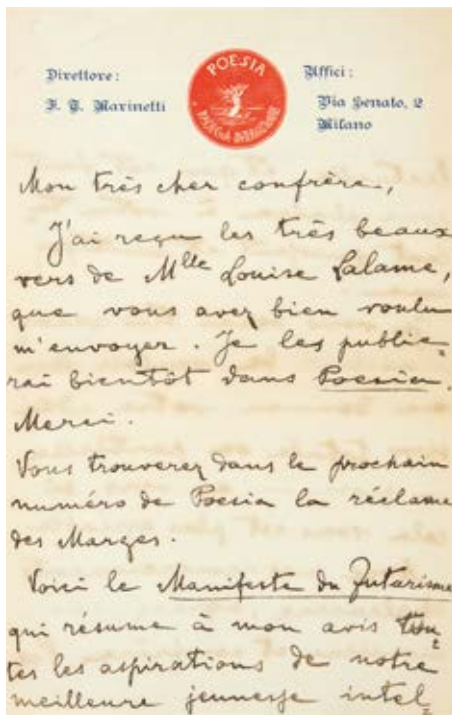 Direttore:
F. T. Marinetti
POESIA
RASSEGNA INTERNAZIONALE
Uffici:
Via Senato, 2
Milano
Mon très cher confrère,
J'ai reçu les très beaux
vers de Mlle Louise Lalame,
que vous avez bien voulu
m'envoyer. Je les publie-
rai bientôt dans Poesia.
Merci.
Vous trouverez dans le prochain
numéro de Poesia la réclame
des Marges.
Voici le Manifeste du Futurisme
qui résume à mon avis tou-
tes les aspirations de notre
meilleure jeunesse intel-